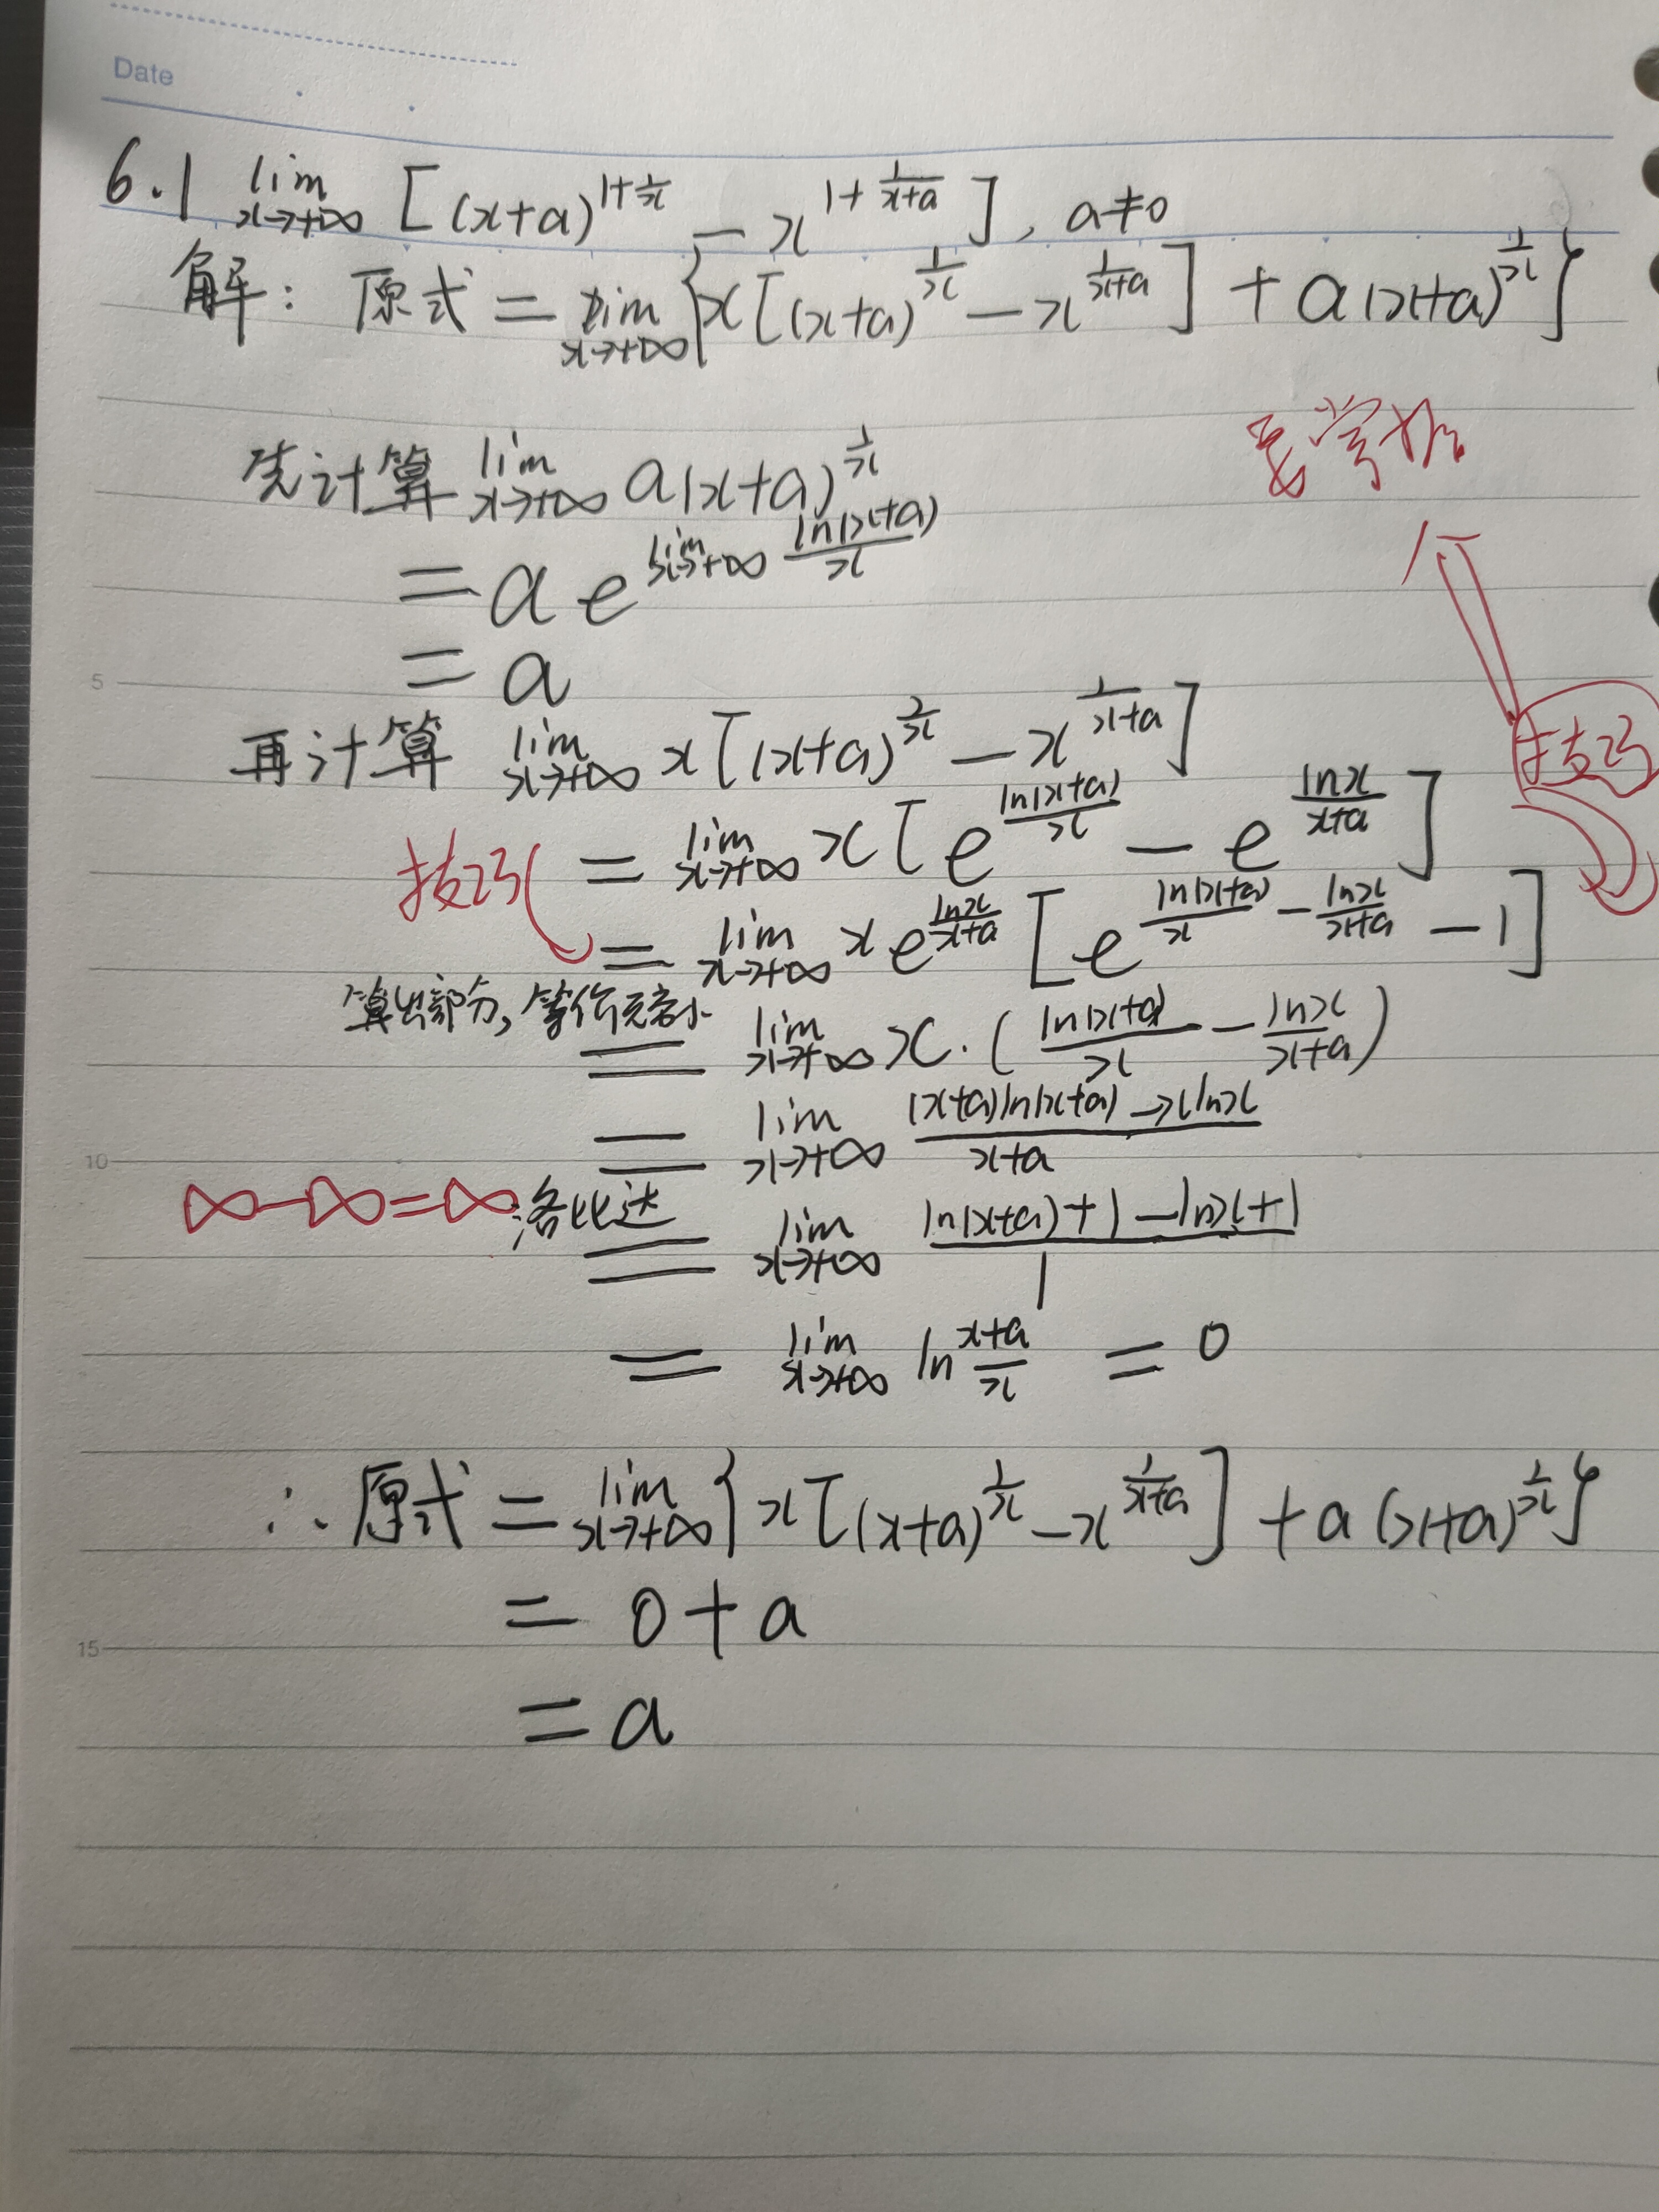 Date
6.1 lim x→+∞ [(x+a)^{1+1/x} - x^{1+1/(x+a)}], a≠0
解: 原式 = lim x→+∞ {x[(x+a)^{1/x} - x^{1/(x+a)}] + a(x+a)^{1/x}}
要学好
先计算 lim x→+∞ a(x+a)^{1/x}
= a e^{lim x→+∞ ln(x+a)/x}
5
= a
再计算 lim x→+∞ x[(x+a)^{1/x} - x^{1/(x+a)}]
技巧
技巧
= lim x→+∞ x[e^{ln(x+a)/x} - e^{lnx/(x+a)}]
= lim x→+∞ x e^{lnx/(x+a)} [e^{ln(x+a)/x - lnx/(x+a)} - 1]
算出部分, 等价无穷小
= lim x→+∞ x·(ln(x+a)/x - lnx/(x+a))
10
= lim x→+∞ ((x+a)ln(x+a) - xlnx)/(x+a)
∞-∞=∞ 洛比达
= lim x→+∞ (ln(x+a)+1-lnx+1)/1
= lim x→+∞ ln (x+a)/x = 0
∴ 原式 = lim x→+∞ {x[(x+a)^{1/x} - x^{1/(x+a)}] + a(x+a)^{1/x}}
= 0+a
15
= a